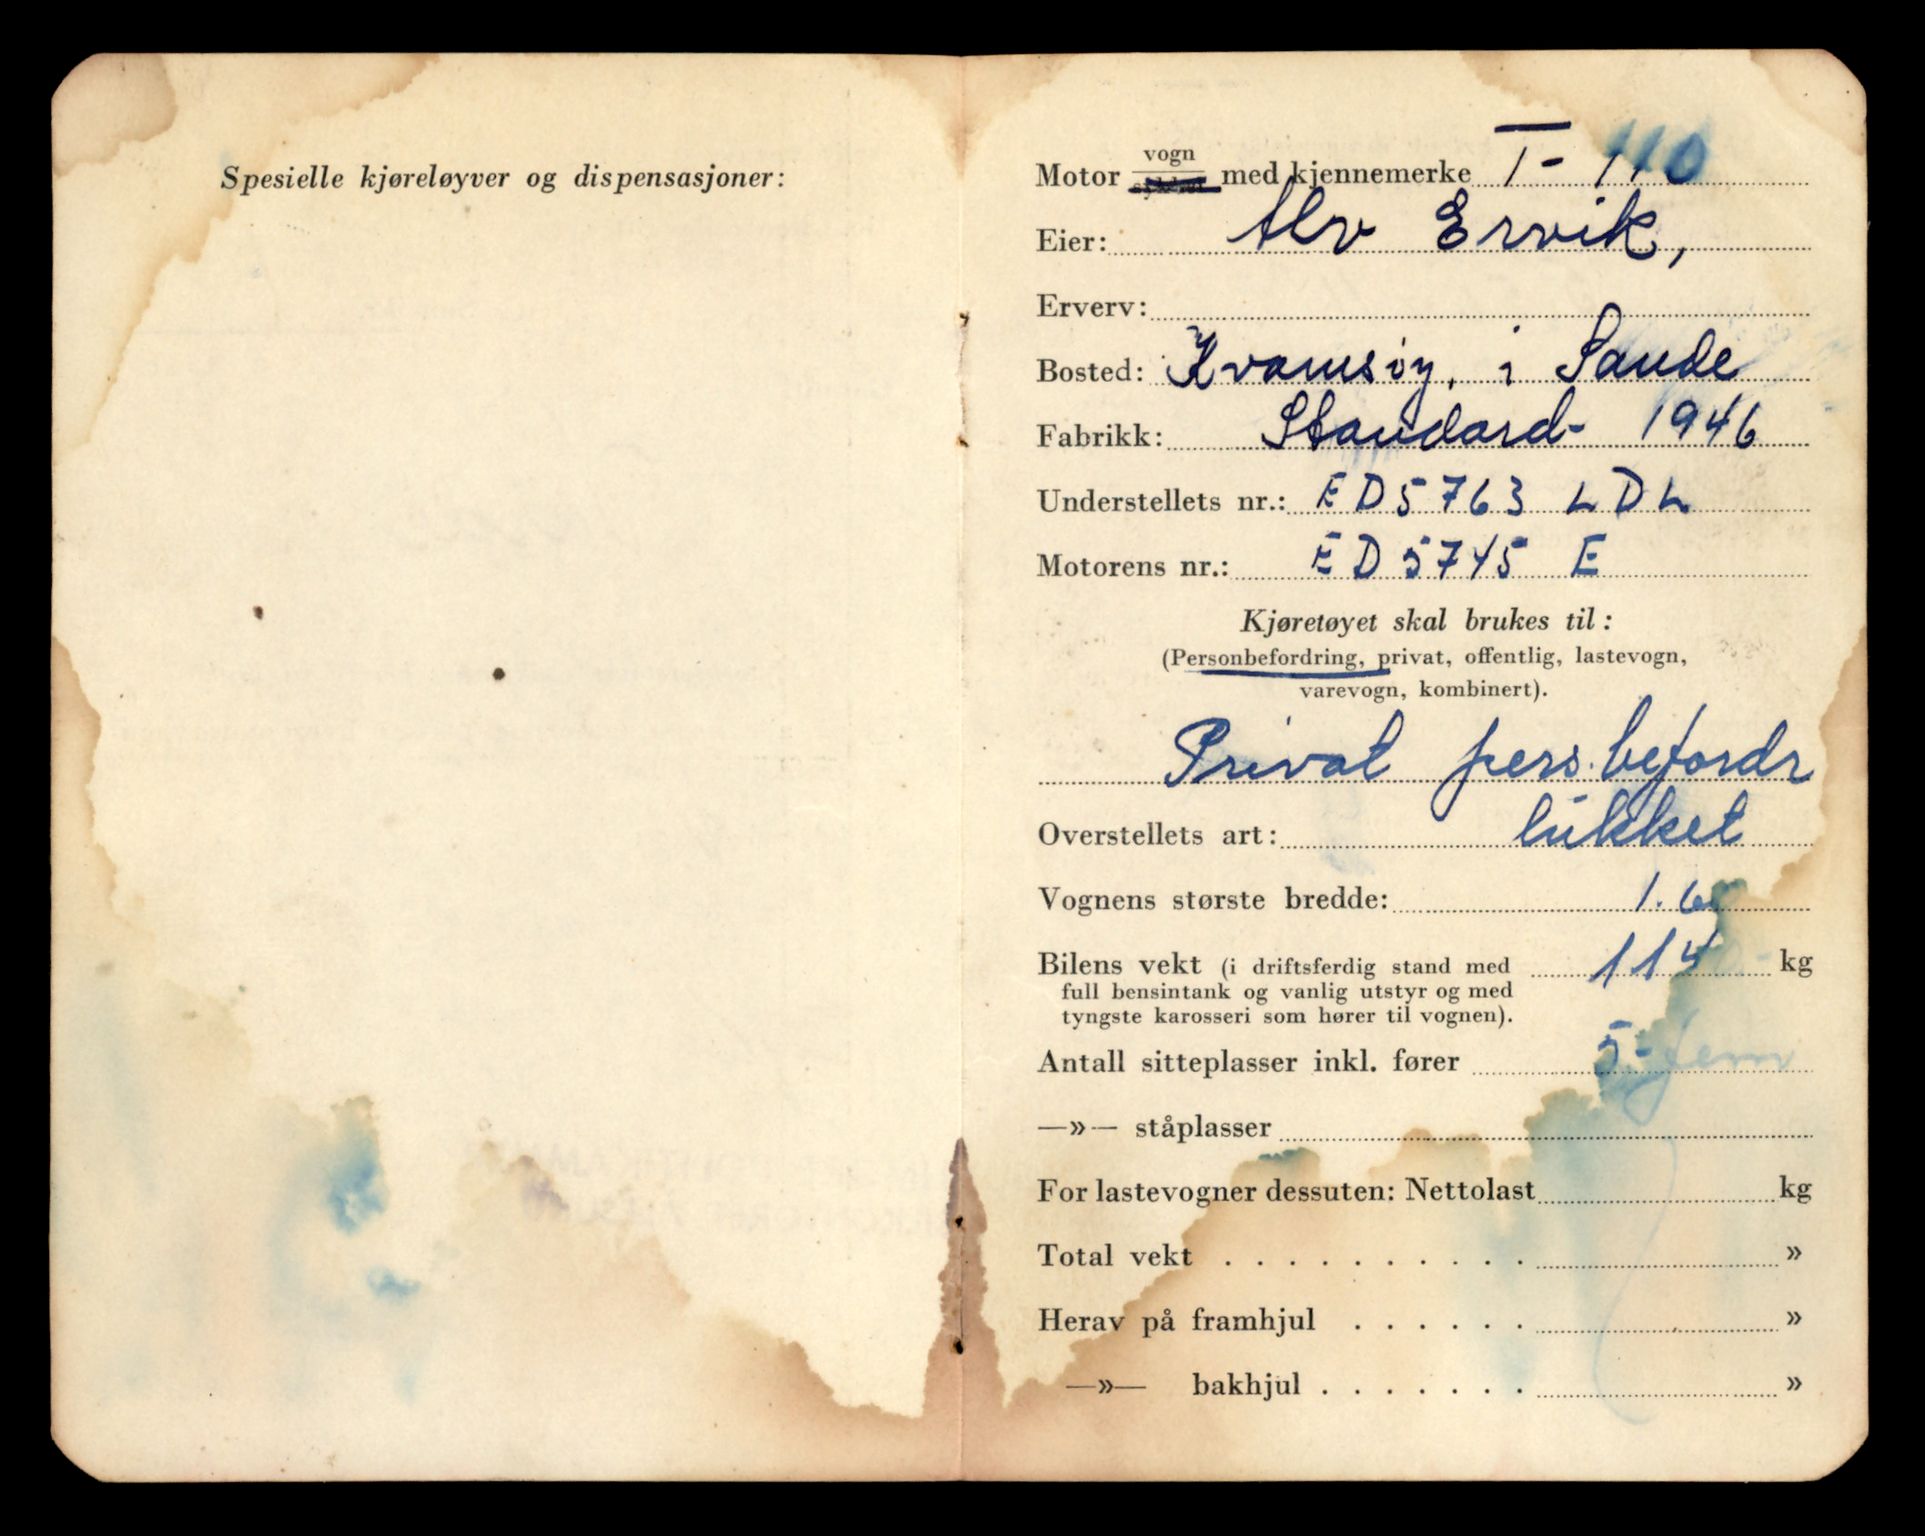 Spesielle kjøreløyver og dispensasjoner:
Motor vogn med kjennemerke T- 110
Eier: Alv Ervik,
Erverv:
Bosted: Kvamsøy, i Sande
Fabrikk: Standard- 1946
Understellets nr.: ED5763 LDL
Motorens nr.: ED5745 E
Kjøretøyet skal brukes til:
(Personbefordring, privat, offentlig, lastevogn,
varevogn, kombinert).
Privat pers.befordr
Overstellets art: lukket
Vognens største bredde: 1.6
Bilens vekt (i driftsferdig stand med kg
full bensintank og vanlig utstyr og med
tyngste karosseri som hører til vognen).
Antall sitteplasser inkl. fører 5-fem
—»— ståplasser
For lastevogner dessuten: Nettolast kg
Total vekt . . . . . . . . . . »
Herav på framhjul . . . . . . »
—»— bakhjul . . . . . . . »